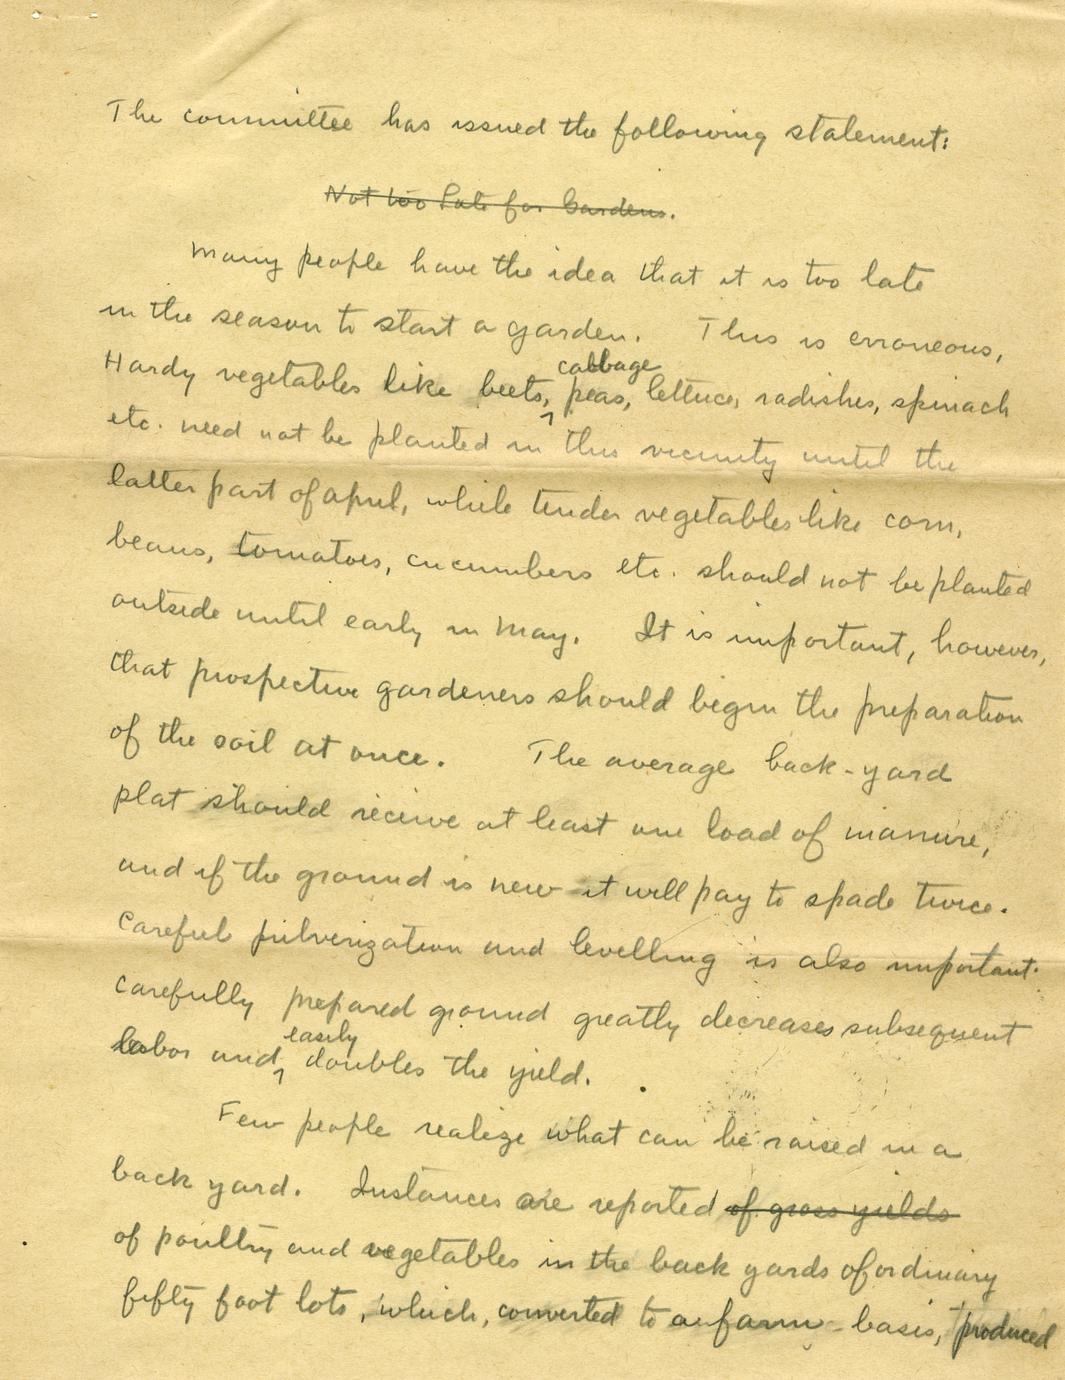 The committee has issued the following statement:
Not too Late for Gardens.
Many people have the idea that it is too late
in the season to start a garden. This is erroneous,
Hardy vegetables like beets, cabbage peas, lettuce, radishes, spinach
etc. need not be planted in this vicinity until the
latter part of April, while tender vegetables like corn,
beans, tomatoes, cucumbers etc. should not be planted
outside until early in May. It is important, however,
that prospective gardeners should begin the preparation
of the soil at once. The average back-yard
plat should receive at least one load of manure,
and if the ground is new it will pay to spade twice.
Careful pulverization and levelling is also important.
Carefully prepared ground greatly decreases subsequent
labor and easily doubles the yield.
Few people realize what can be raised in a
back yard. Instances are reported of gross yields
of poultry and vegetables in the back yards of ordinary
fifty foot lots, which, converted to a farm basis, produced